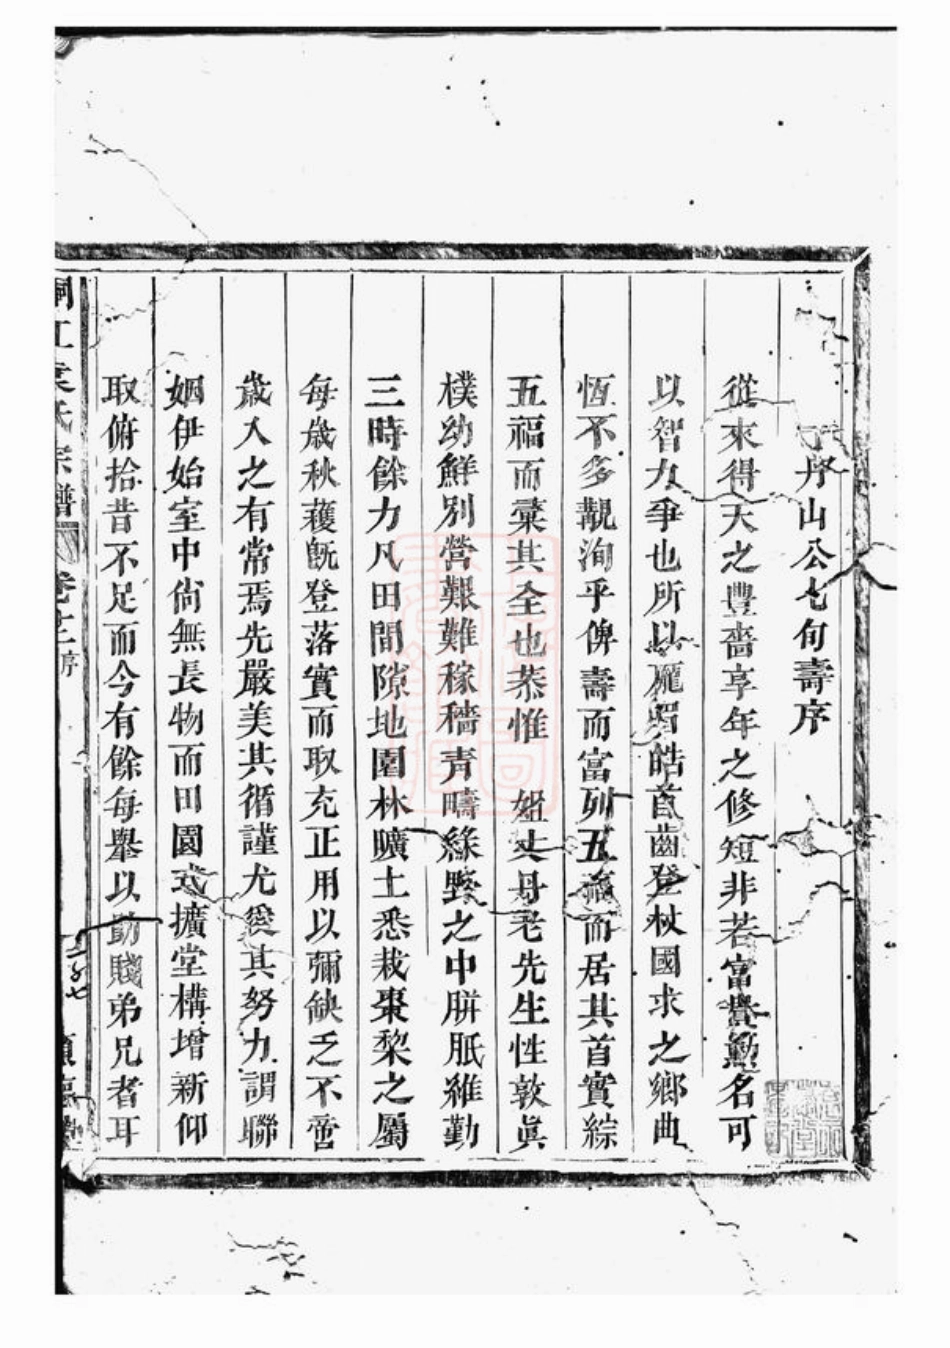 丹山公七旬壽序
從來得天之豐嗇享年之修短非若富貴勳名可
以智力爭也所以龐眉皓首齒登杖國求之鄉曲
恆不多覯洵乎俾壽而富列五福而居其首實綜
五福而彙其全也恭惟 姻丈丹老先生性敦真
樸幼鮮別營艱難稼穡青疇綠野之中胼胝維勤
三時餘力凡田間隙地園林曠土悉栽棗棃之屬
每歲秋穫旣登落實而取充正用以彌缺乏不啻
歲入之有常焉先嚴美其循謹尤愛其努力謂聯
姻伊始室中尙無長物而田園式擴堂構增新仰
取俯拾昔不足而今有餘每舉以勖賤弟兄者耳
江 氏宗譜 卷十二 序